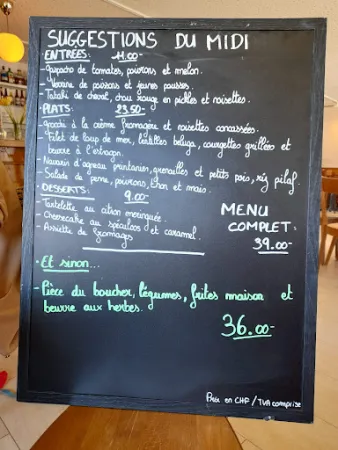 SUGGESTIONS DU MIDI
ENTRÉES: 11.00-
- Gazpacho de tomates, poivrons et melon.
- Verrine de poissons et jeunes pousses.
- Tataki de cheval, chou rouge en pickles et noisettes.
PLATS: 23.50-
- gnocchi à la crème fromagère et noisettes concassées.
- Filet de loup de mer, lentilles beluga, courgettes grillées et
beurre à l'estragon.
- Navarin d'agneau printanier, grenailles et petits pois, riz pilaf.
- Salade de penne, poivrons, thon et maïs.
DESSERTS: 9.00-
- Tartelette au citron meringuée.
- Cheesecake au spéculoos et caramel.
- Assiette de fromages
MENU
COMPLET:
39.00-
• Et sinon...
- Pièce du boucher, légumes, frites maison et
beurre aux herbes.
36.00-
Prix en CHF / TVA comprise